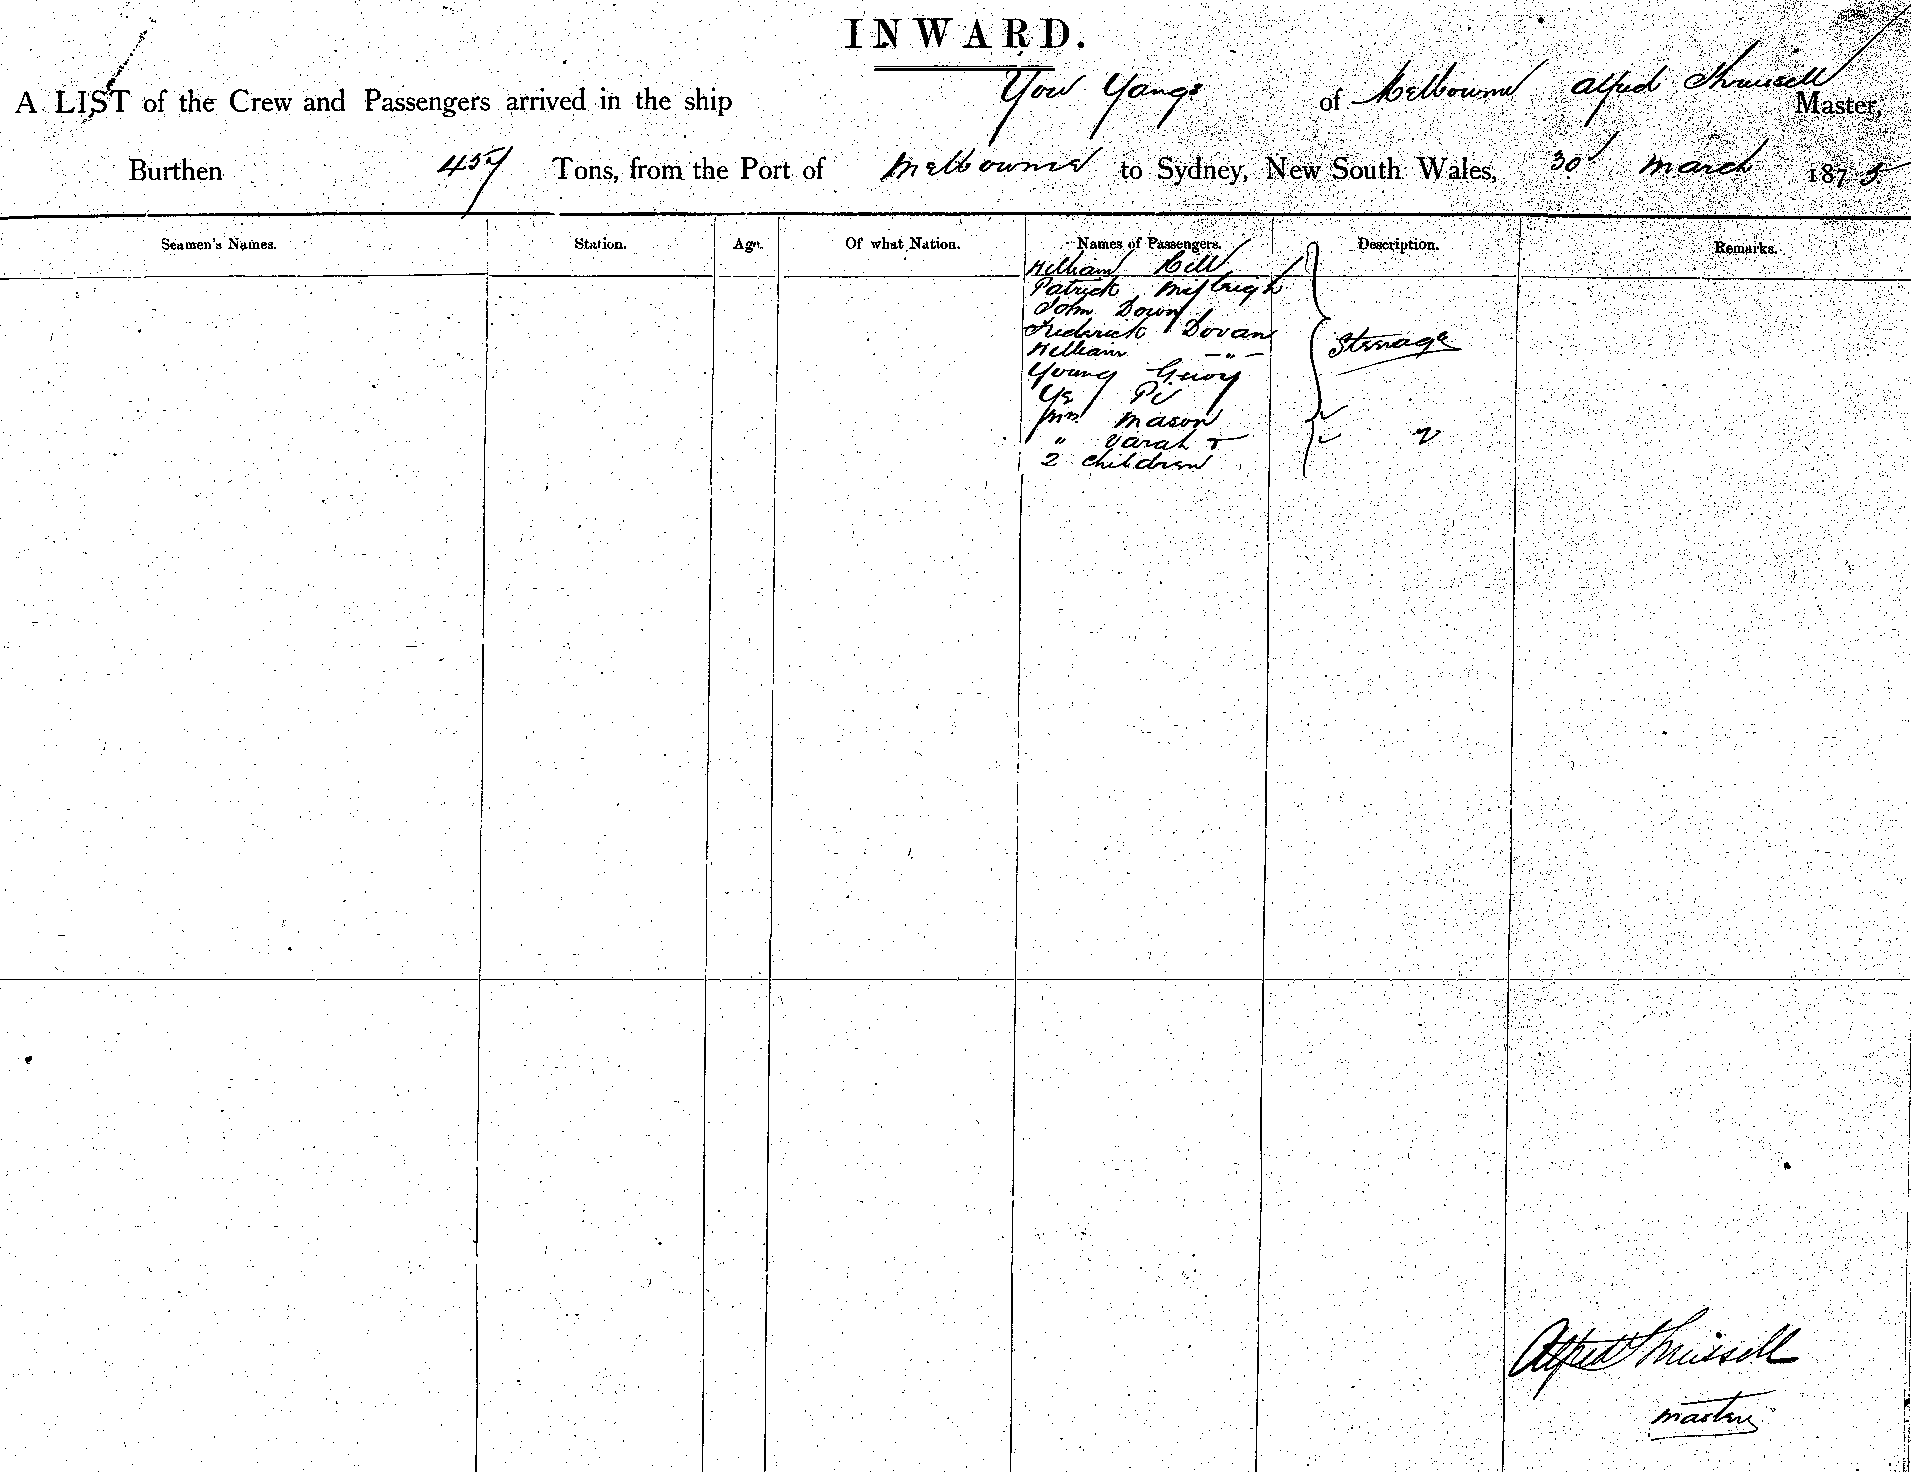 INWARD.
A LIST of the Crew and Passengers arrived in the ship You Yangs of Melbourne Alfred Thrussell Master,
Burthen 457 Tons, from the Port of Melbourne to Sydney, New South Wales, 30 March 1875
Seamen's Names. Station. Age. Of what Nation. Names of Passengers. Description. Remarks.
William Hill
Patrick
John Down
Frederick Dovan
William — " — Steerage
Young
Ye
Mrs Mason
" Varah &
2 children
Alfred Thrussell
Master